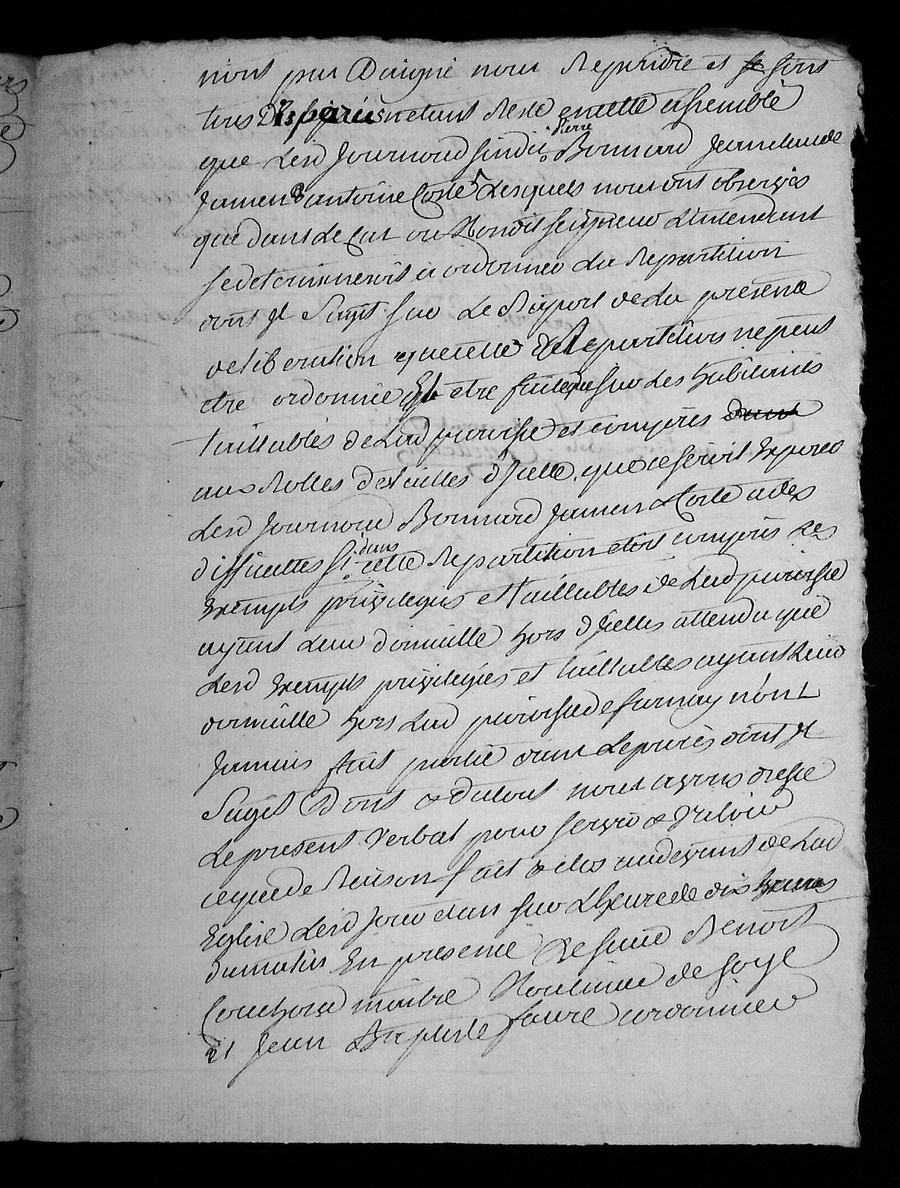 nont pas Daigné nous Repondre et se sont
tous Disparus netant Resté en cette assemblée
que Lesd Journoud sindic Pierre Bonnard Jean claude
Jamen & antoine Coste Lesquels nous ont observés
que dans Le Cas ou Monseigneur Lintendant
se determineroit a ordonner La Repartition
dont Il Sagit sur Le Raport de La presente
deliberation que cette Repartition ne peut
etre ordonnée Et etre faite que sur Les habitants
taillables de Lad paroisse et compris dans
aux Rolles des tailles d'Icelle, que ce seroit Exposer
Lesd Journoud Bonnard Jamen & Coste a des
difficultes si dans cette Repartition etoit compris Les
Exempts privilegiés et taillables de Lad paroisse
ayant Leur domicille hors d'Icelles attendu que
Lesd Exempts privilegiés et taillables ayant Leur
domicille hors Lad paroisse de furnay n'ont
Jamais fait partie dans Le procès dont Il
Sagit Dont & du tout nous avons dressé
Le present verbal pour servir & valoir
ce que de Raison fait & clos au devant de Lad
Eglise Lesd Jour et an sur Lheure de dix heures
du matin En presence de sieur Benoit
Couchoud maitre Moulinier de soye
et Jean Baptiste faure cordonnier